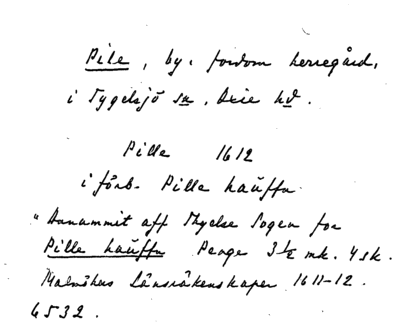 Pile, by, fordom herregård,
i Tygelsjö sn, Oxie hd.
Pille 1612
i förb. Pille hauffn
"Annammit aff Thyelse Sogen for
Pille hauffn Penge 3½ mk. 4 sk.
Malmöhus Länsräkenskaper 1611-12.
6532.